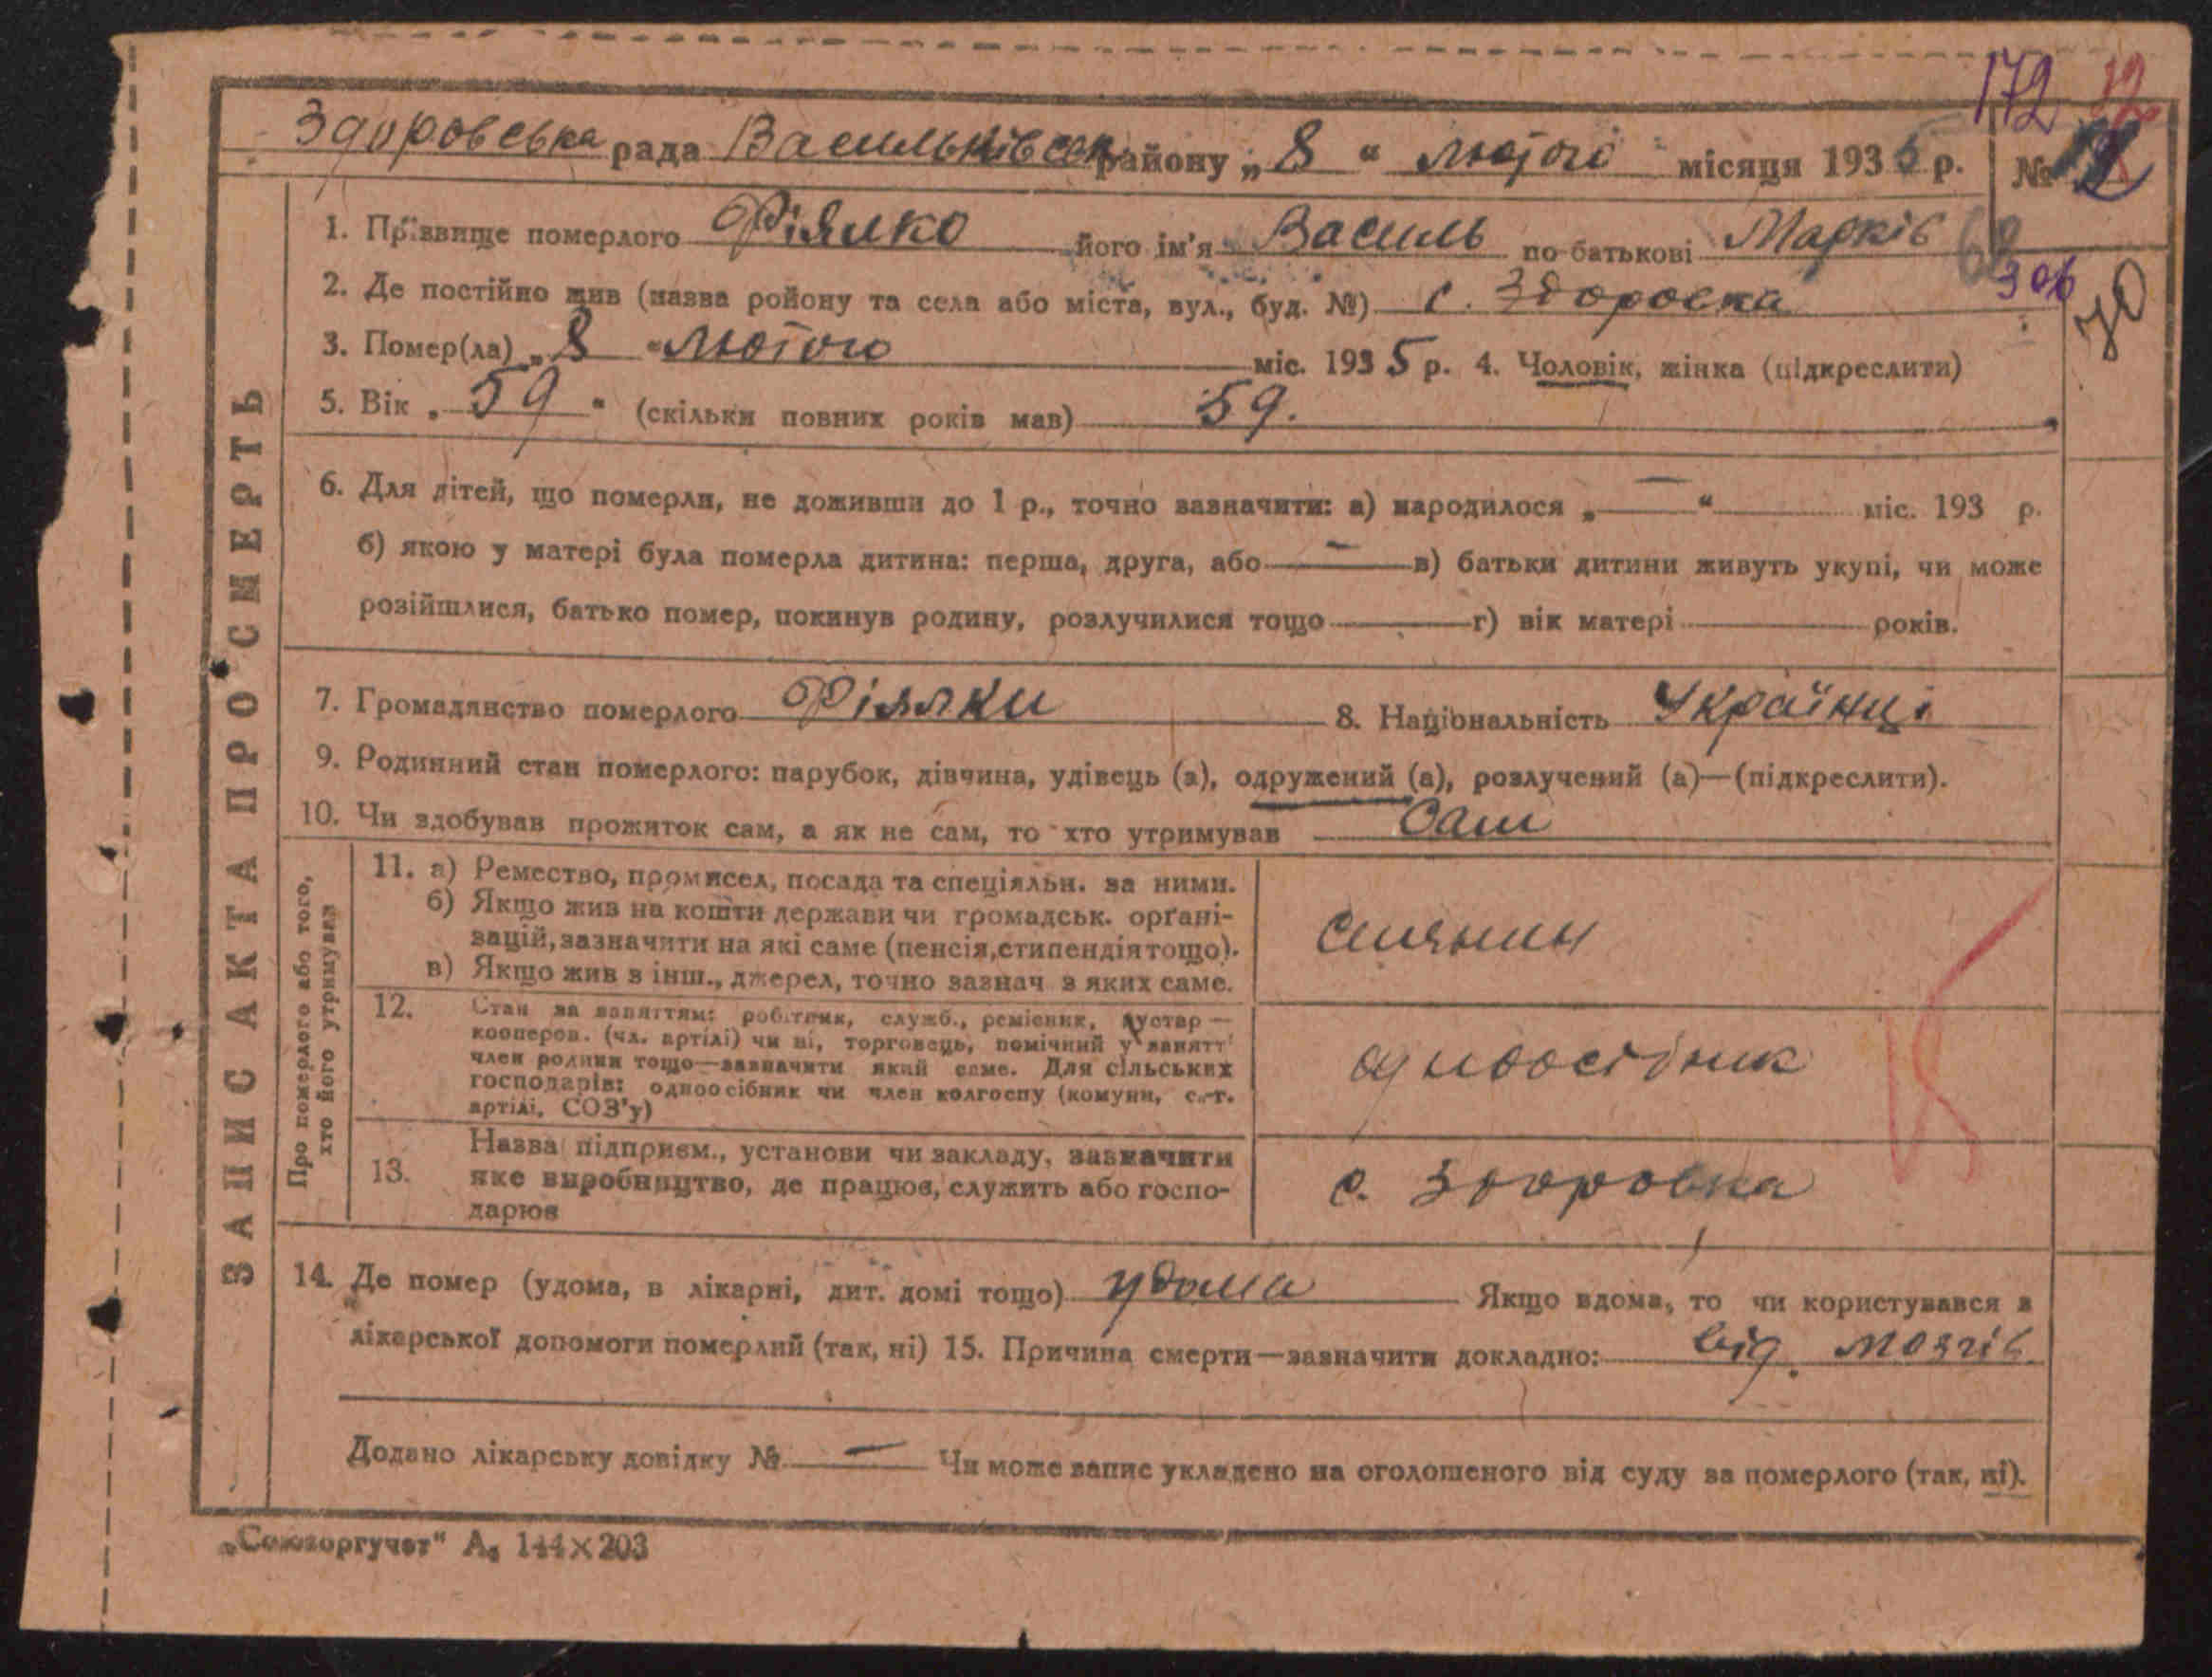 172
Здоровська рада Васильківськ району „ 8 “ лютого місяця 1935 р. №
1. Прізвище померлого Фіялко його ім'я Василь по батькові Марків
306
2. Де постійно жив (назва ройону та села або міста, вул., буд. №) с. Здоровка
70
3. Помер(ла) „ 8 “ лютого міс. 1935 р. 4. Чоловік, жінка (підкреслити)
5. Вік „ 59 “ (скільки повних років мав) 59.
6. Для дітей, що померли, не доживши до 1 р., точно зазначити: а) народилося „ — “ міс. 193 р.
б) якою у матері була померла дитина: перша, друга, або — в) батьки дитини живуть укупі, чи може
розійшлися, батько помер, покинув родину, розлучилися тощо — г) вік матері — років.
7. Громадянство померлого Фіялки 8. Національність Українці
9. Родинний стан померлого: парубок, дівчина, удівець (а), одружений (а), розлучений (а)—(підкреслити).
10. Чи здобував прожиток сам, а як не сам, то хто утримував Сам
ЗАПИС АКТА ПРО СМЕРТЬ
Про померлого або того,
хто його утримував
11. а) Ремество, промисел, посада та спеціяльн. за ними.
б) Якщо жив на кошти держави чи громадськ. орґані-
зацій, зазначити на які саме (пенсія, стипендія тощо).
в) Якщо жив з інш., джерел, точно зазнач з яких саме.
селянин
12. Стан за заняттям: робітник, служб., ремісник, кустар —
кооперов. (чл. артілі) чи ні, торговець, помічний у занятт
член родини тощо—зазначити який саме. Для сільських
господарів: одноосібник чи член колгоспу (комуни, с.-г.
артілі, СОЗ'у)
одноосібник
13. Назва підприєм., установи чи закладу, зазначити
яке виробництво, де працює, служить або госпо-
дарює
с. Здоровка
14. Де помер (удома, в лікарні, дит. домі тощо) удома Якщо вдома, то чи користувався з
лікарської допомоги померлий (так, ні) 15. Причина смерти—зазначити докладно: від. мозгів.
Додано лікарську довідку № — Чи може запис укладено на оголошеного від суду за померлого (так, ні).
„Союзоргучет“ А₆ 144×203